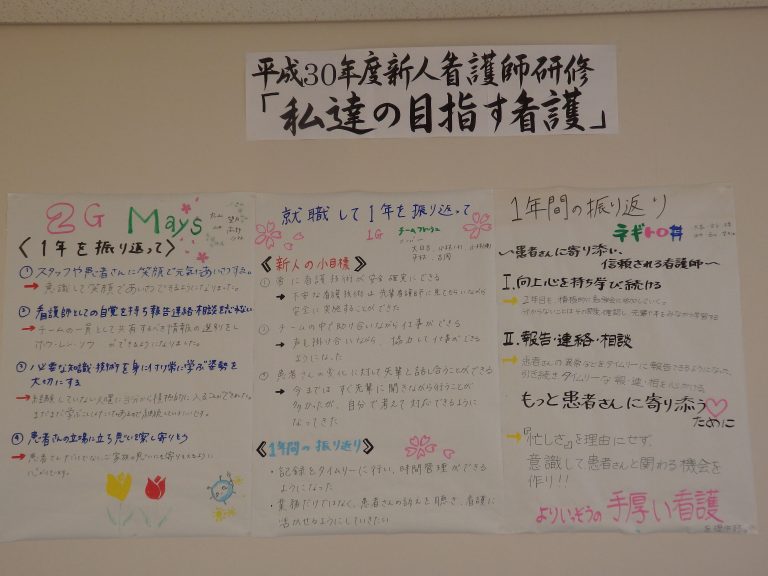 平成30年度新人看護師研修
「私達の目指す看護」
2G Mays
〈1年を振り返って〉
① スタッフや患者さんに笑顔で元気にあいさつする。
→意識して笑顔であいさつできるようになりました。
② 看護師としての自覚を持ち報告連絡相談を忘れない
→チームの一員として共有するべき情報の選別をし
ホウ・レン・ソウ ができるようになりました。
③ 必要な知識・技術を身に付け常に学ぶ姿勢を
大切にする
④ 患者さんの立場に立ち思いを察し寄りそう
就職して1年を振り返って
1G チームフレッシュ
《新人の小目標》
① 常に看護技術が安全確実にできる
→ 不安な看護技術は先輩看護師に見てもらいながら
安全に実施することができた
② チームの中で助け合いながら仕事ができる
→ 声を掛け合いながら、協力して仕事ができる
ようになった
③ 患者さんの変化に対して先輩と話し合うことができる
→ 今まではすぐ先輩に聞きながら行うことが
多かったが、自分で考えて対応できるように
なってきた
《1年間の振り返り》
・記録をタイムリーに行い、時間管理ができる
ようになった
・業務だけではなく、患者さんの訴えを聴き、看護に
活かせるようにしていきたい
1年間の振り返り
ネギトロ丼
～患者さんに寄り添い、
信頼される看護師～
Ⅰ.向上心を持ち学び続ける
Ⅱ.報告・連絡・相談
→患者さんの異常などをタイムリーに報告できるようになった
引き続きタイムリーな報・連・相を心がける
もっと患者さんに寄り添う♡
ために
→『忙しさ』を理由にせず、
意識して患者さんと関わる機会を
作り!!
よりいっそうの手厚い看護